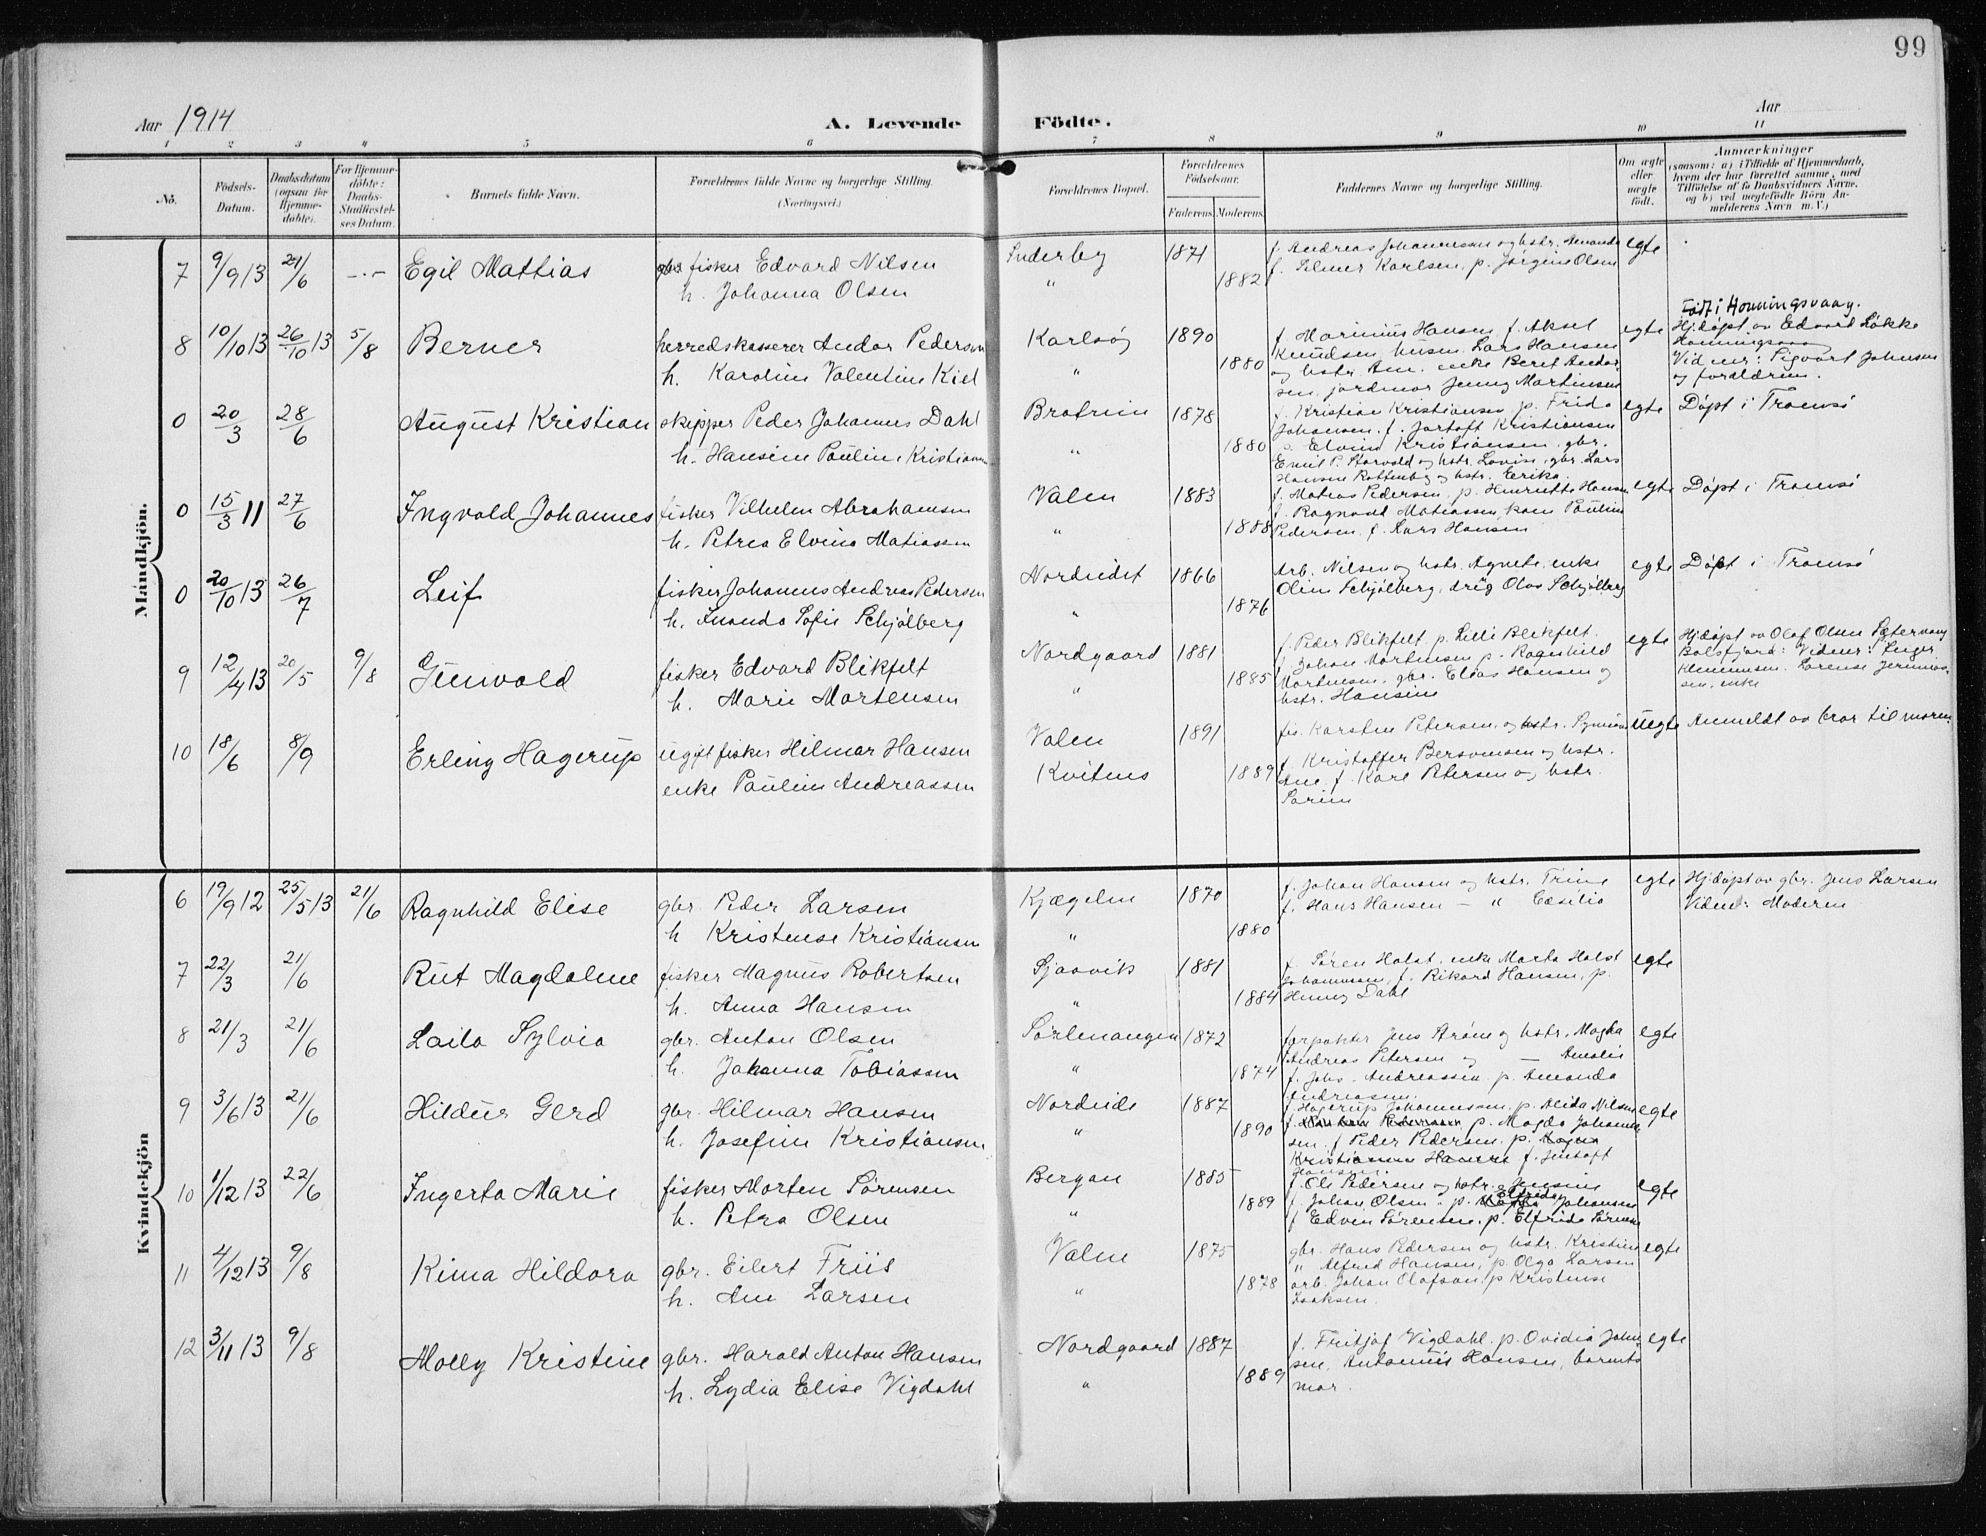 99
Aar 1914
A. Levende Födte.
Aar
1 2 3 4 5 6 7 8 9 10 11
No.
Födsels-Datum.
Daabsdatum (ogsaa for Hjemme-döbte).
For Hjemme-döbte: Daabs-Stadfæstel-ses Datum.
Barnets fulde Navn.
Forældrenes fulde Navne og borgerlige Stilling.
(Næringsvei.)
Forældrenes Bopæl.
Forældrenes Födselsaar.
Faderens. Moderens.
Faddernes Navne og borgerlige Stilling.
Om ægte eller uægte födt.
Anmærkninger
(saasom: a) i Tilfælde af Hjemmedaab,
hvem der har forrettet samme, med
Tilföielse af to Daabsvidners Navne.
og b) ved uægtefödte Börn An-
melderens Navn m. V.)
Mandkjön.
7 9/9 13 21/6 -.- Egil Mattias fisker Edvard Nilsen Suderby 1871 f. Andreas Johannesen og hstr. Amanda egte
h. Johanna Olsen " 1882 f. Hilmer Karlsen. p. Jörgine Olsen
Födt i Honningsvaag.
8 10/10 13 26/10 13 5/8 Berner herredskasserer Andor Pedersen Karlsöy 1890 f. Marinius Hansen f. Aksel egte Hjdöpt av Edvard Lökke
Knudsen husm. Lars Hansen Honningsvaag
h. Karoline Valentine Kiel " 1880 og hstr. Ane. enke Beret Andor- Vidner: Sigvart Johnsen
sen. jordmor Jenny Martinsen og forældrene.
0 20/3 28/6 August Kristian skipper Peder Johannes Dahl Bratrein 1878 f. Kristian Kristiansen p. Frida egte Döpt i Tromsö
Johansen. f. Jartoft Kristiansen
h. Hansine Pauline Kristiansen " 1880 Elvine Kristiansen. gbr.
Emil P. Korvold og hstr. Lovise. gbr. Lars
Hansen Rottenby og hstr. Erika.
0 15/3 11 27/6 Ingvald Johannes fisker Vilhelm Abrahamsen Valen 1883 f. Matias Pedersen. p. Henriette Hansen egte Döpt i Tromsö
f. Ragnvald Matiassen kone Pauline
h. Petrea Elvine Matiassen " 1888 Pedersen. f. Lars Hansen
0 20/10 13 26/7 Leif fisker Johannes Andreas Pedersen Nordeidet 1866 Arb. Nilsen og hstr. Agnete. enke egte Döpt i Tromsö
h. Amanda Sofie Schjölberg " 1876 Oline Schjölberg. Olav Schjölberg
9 12/4 13 20/5 9/8 Gunvald fisker Edvard Blikfelt Nordgaard 1881 f. Peder Blikfelt. p. Lilli Blikfelt. egte Hjdöpt av Olaf Olsen Sætervaag
f. Johan Mortensen p. Ragnhild Balsfjord: Vidner:
h. Marie Mortensen " 1885 Mortensen. gbr. Elias Hansen og Klemmensen. Lorense Jeremias-
hstr. Hansine sen. enke
10 18/6 8/9 Erling Hagerup ugift fisker Hilmar Hansen Valen 1891 fis. Karsten Petersen. og hstr. uegte Anmeldt av bror til moren
f. Kristoffer Bervensen og hstr.
enke Pauline Andreassen Kvitnes 1889 Ane f. Karl Petersen og hstr.
Sarine
Kvindekjön
6 19/9 12 25/5 13 21/6 Ragnhild Elise gbr. Peder Larsen Kjægelen 1870 f. Johan Hansen og hstr. Trine egte Hjdöpt av gbr. Jens Larsen
f. Hans Hansen - " Cæsilia Vidne: Moderen
h Kristense Kristiansen " 1880
7 22/3 21/6 Rut Magdalene fisker Magnus Robertsen Sjaavik 1881 f. Sören Holst. enke Marta Holst egte
Johannesen, f. Rikard Hansen, p.
h. Anna Hansen " 1884 Henny Dahl
8 21/3 21/6 Laila Sylvia gbr. Anton Olsen Sörlenangen 1872 forpakter Jens Aröe og hstr. Magda egte
Andreas Petersen og — Amalie
h. Johanna Tobiassen " 1874 f. Johs. Andreassen. p. Amanda
Andreassen.
9 3/6 13 21/6 Hildur Gerd gbr. Hilmar Hansen Nordeide 1887 f. Hagerup Johannesen. p. Alida Nilsen egte
p. Magda Johanne-
h. Josefine Kristiansen " 1890 sen. f Peder Pedersen. p.
Kristianna Hansen f. Jentoft
Hansen.
10 1/12 13 22/6 Ingerta Marie fisker Morten Sörensen Bergan 1885 f. Ole Pedersen og hstr. Jensine egte
h. Petra Olsen " 1889 f. Johan Olsen. p. Elfrida Johansen
f Edven Sörensen. p. Elfrida Sörensen
11 4/12 13 9/8 Rima Hildora gbr. Eilert Friis Valen 1875 gbr. Hans Pedersen og hstr. Kristine egte
" Alfred Hansen, p. Olga Larsen
h. Ane Larsen " 1878 arb. Johan Olafson. p Kristense
Isaksen.
12 3/11 13 9/8 Molly Kristine gbr. Harald Anton Hansen Nordgaard 1887 f. Fritjof Vigdahl. p. Ovidia Johan- egte
sen. Antonius Hansen, barnets
h. Lydia Elise Vigdahl " 1889 mor.